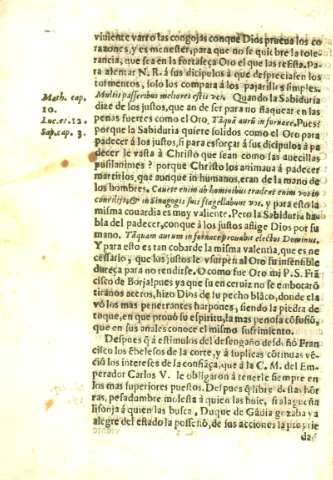 viniente varro las congojas conque Dios prueua los co
razones, y es menester, para que no se quiebre la tole-
rancia, que sea en la fortaleça Oro el que las resista. Pa
ra alentar N. R. à sus dicipulos à que despreciasen los
tormentos, solo los compara à los pajarillos simples.
Math. cap. 10.
Multis passeribus meliores estis vos, Quando la Sabiduria
dize de los justos, que an de ser para no flaquear en las
Luc. cr. 12.
penas fuertes como el Oro, Tāquā aurū in fornace, Pues?
Sap. cap. 3.
porque la Sabiduria quiere solidos como el Oro para
padecer à los justos, si para esforçar à sus dicipulos à pa
decer le vasta à Christo que sean como las auecillas
pusilanimes? porque Christo los animaua à padecer
martirios, que aunque inhumanos, eran de la mano de
los hombres. Cauete enim ab hominibus tradent enim vos in
concilijs, & in sinagogis suis flagellabunt vos, y para esto la
misma couardia es muy valiente. Pero la Sabiduria hau
bla del padecer, conque à los justos aflige Dios por su
mano. Tāquam aurum in fornace prouabit electos Dominus.
Y para esto es tan cobarde la misma valentia, que es ne
cessario, que los justos le vsurpen al Oro su insensible
dureça para no rendirse. O como fue Oro mi P. S. Frā
cisco de Borja! pues ya que su en ceruiz no se embotarō
tiranos aceros, hizo Dios de su pecho blāco, donde cla
vò los mas penetrantes harpones, siendo la piedra de
toque, en que prouò su espiritu, la mas penosa cōfusiō,
que en sus anales conoce el mismo sufrimiento.
Despues q̄ à estimulos del desengaño dexò Fran
cisco los Ebelesos de la corte, y à suplicas cōtinuas vē
ciò los intereses de la confiāça, que à la C. M. del Em-
perador Carlos V. le obligaron à tenerle siempre en
los mas superiores puestos. Despues q̄ libre destas hor
ras, pesadumbre molesta à quien las huie, si alagueña
lisonja à quien las busca, Duque de Gādia gozaba ya
alegre del estado la possesiō, de sus acciones la propie
dad